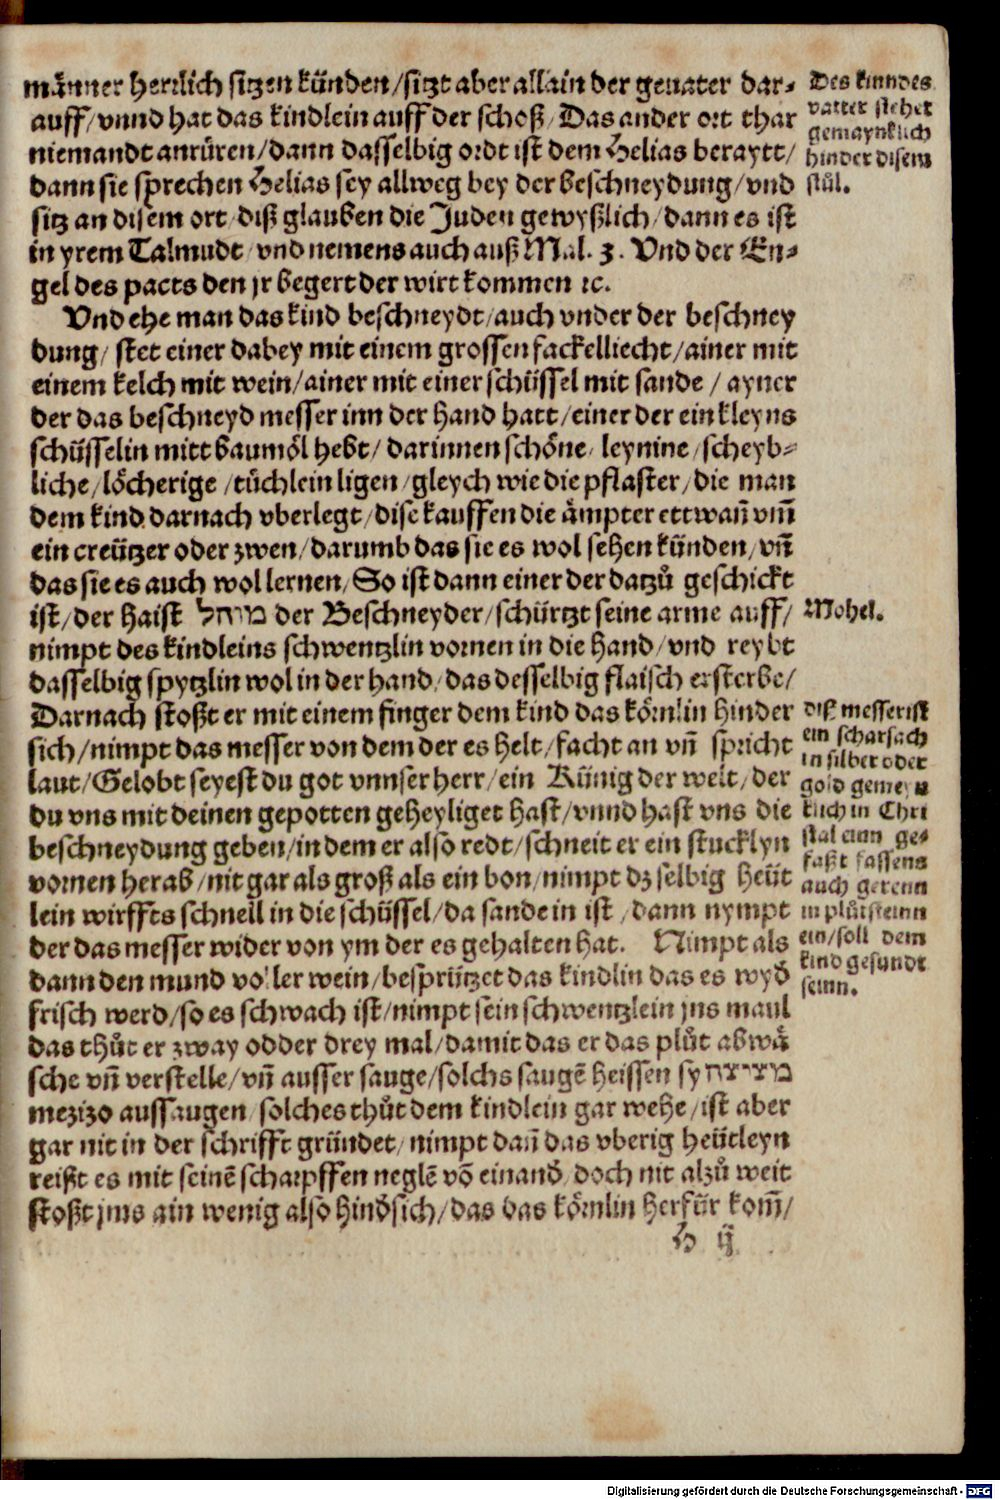 männer herrlich sitzen künden/sitzt aber allain der geuater dar-
auff/vnnd hat das kindlein auff der schoß/Das ander ort thar
niemandt anrüren/dann dasselbig ordt ist dem Helias beraytt/
dann sie sprechen Helias sey allweg bey der beschneydung/vnd
sitz an disem ort/diß glauben die Juden gewyßlich/dann es ist
in yrem Talmudt/vnd nemens auch auß Mal. 3. Vnd der En-
gel des pacts den jr begert der wirt kommen ꝛc.
Vnd ehe man das kind beschneydt/auch vnder der beschney
dung/stet einer dabey mit einem grossen fackelliecht/ainer mit
einem kelch mit wein/ainer mit einer schüssel mit sande/ayner
der das beschneyd messer inn der hand hatt/einer der ein kleyns
schüsselin mitt baumöl hebt/darinnen schöne/leynine/scheyb-
liche/löcherige/tüchlein ligen/gleych wie die pflaster/die man
dem kind darnach vberlegt/dise kauffen die ämpter ettwañ vm̃
ein creützer oder zwen/darumb das sie es wol sehen künden/vñ
das sie es auch wol lernen/So ist dann einer der datzů geschickt
ist/der haist מוהל der Beschneyder/schürtzt seine arme auff/
nimpt des kindleins schwentzlin vornen in die hand/vnd reybt
dasselbig spytzlin wol in der hand/das desselbig flaisch ersterbe/
Darnach stoßt er mit einem finger dem kind das kömlin hinder
sich/nimpt das messer von dem der es helt/facht an vñ spricht
laut/Gelobt seyest du got vnnser herr/ein Künig der welt/der
du vns mit deinen gepotten geheyliget hast/vnnd hast vns die
beschneydung geben/in dem er also redt/schneit er ein stucklyn
vornen herab/nit gar als groß als ein bon/nimpt dz selbig heüt
lein wirffts schnell in die schüssel/da sande in ist/dann nympt
der das messer wider von ym der es gehalten hat. Nimpt als
dann den mund voller wein/besprützet das kindlin das es wyd̃
frisch werd/so es schwach ist/nimpt sein schwentzlein jns maul
das thůt er zway odder drey mal/damit das er das plůt abwä
sche vñ verstelle/vñ ausser sauge/solchs saugẽ heissen sy מציצה
mezizo aussaugen/solches thůt dem kindlein gar wehe/ist aber
gar nit in der schrifft gründet/nimpt dañ das vberig heütleyn
reißt es mit seinẽ scharpffen neglẽ võ einand̃/doch nit alzů weit
stoßt jms ain wenig also hind̃sich/das das kömlin herfür kom̃/
H ij
Des kinndes
vatter stehet
gemaynklich
hinder disem
stůl.
Mohel.
diß messer ist
ein scharsach
in silber oder
gold gemeyn
klich in Chri
stal einn ge-
faßt fassens
auch gerenn
in plůtsteinn
ein/soll dem
kind gesundt
seinn.
Digitalisierung gefördert durch die Deutsche Forschungsgemeinschaft - DFG